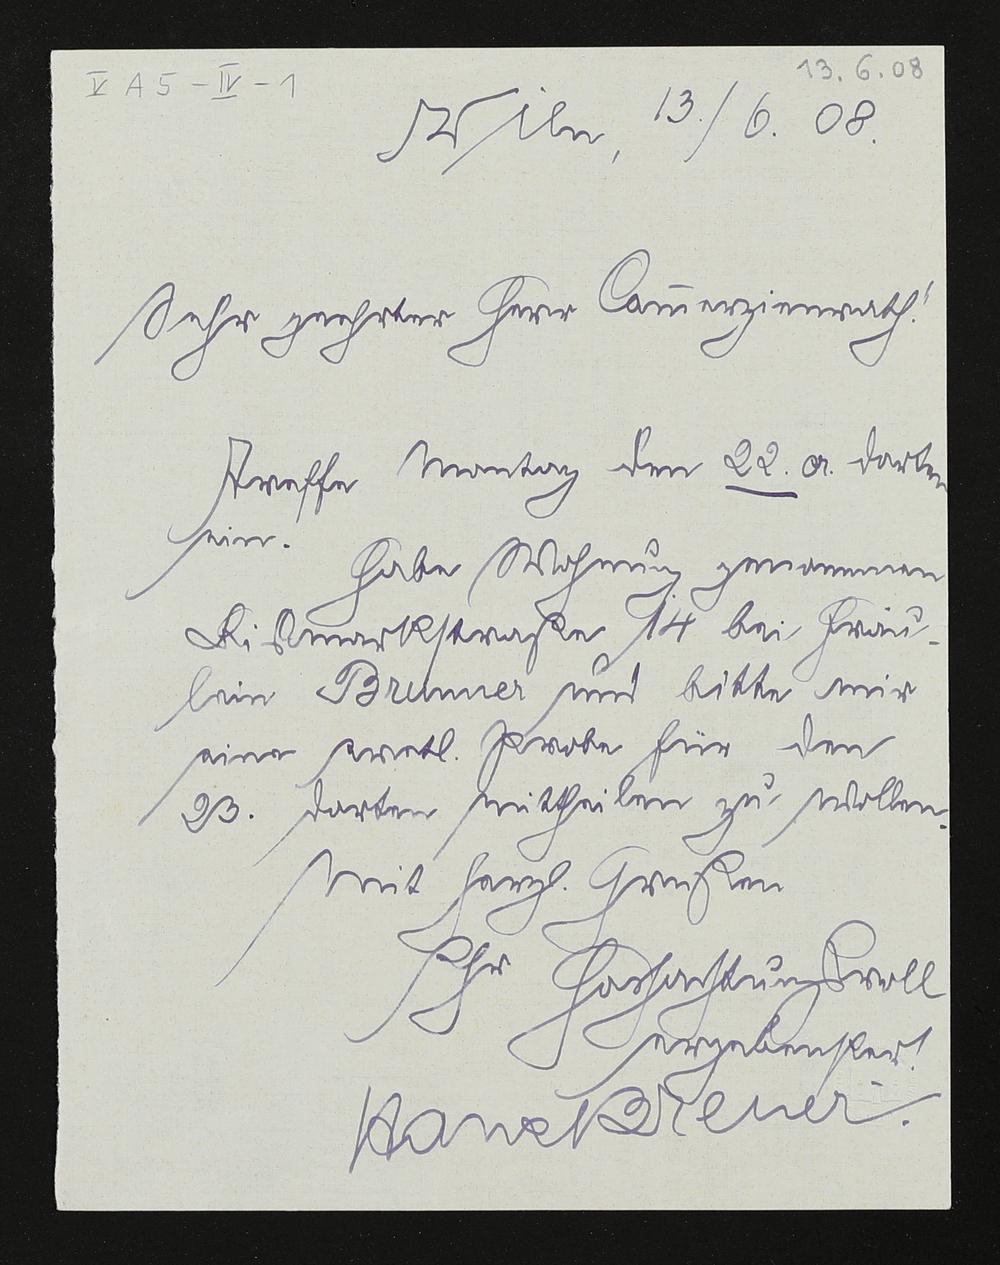 V A 5 - IV - 1
13. 6. 08
Wien, 13./6. 08.
Sehr geehrter Herr Com̅erzienrath!
Treffe Montag den 22. a. dorten
ein.
Habe Wohnung genommen
Bismarkstraße 14 bei Fräu-
lein Brunner und bitte mir
eine eventl. Probe für den
23. dorten mittheilen zu wollen.
Mit herzl. Grüßen
Ihr Hochachtungsvoll
ergebenster!
Hans Breuer.